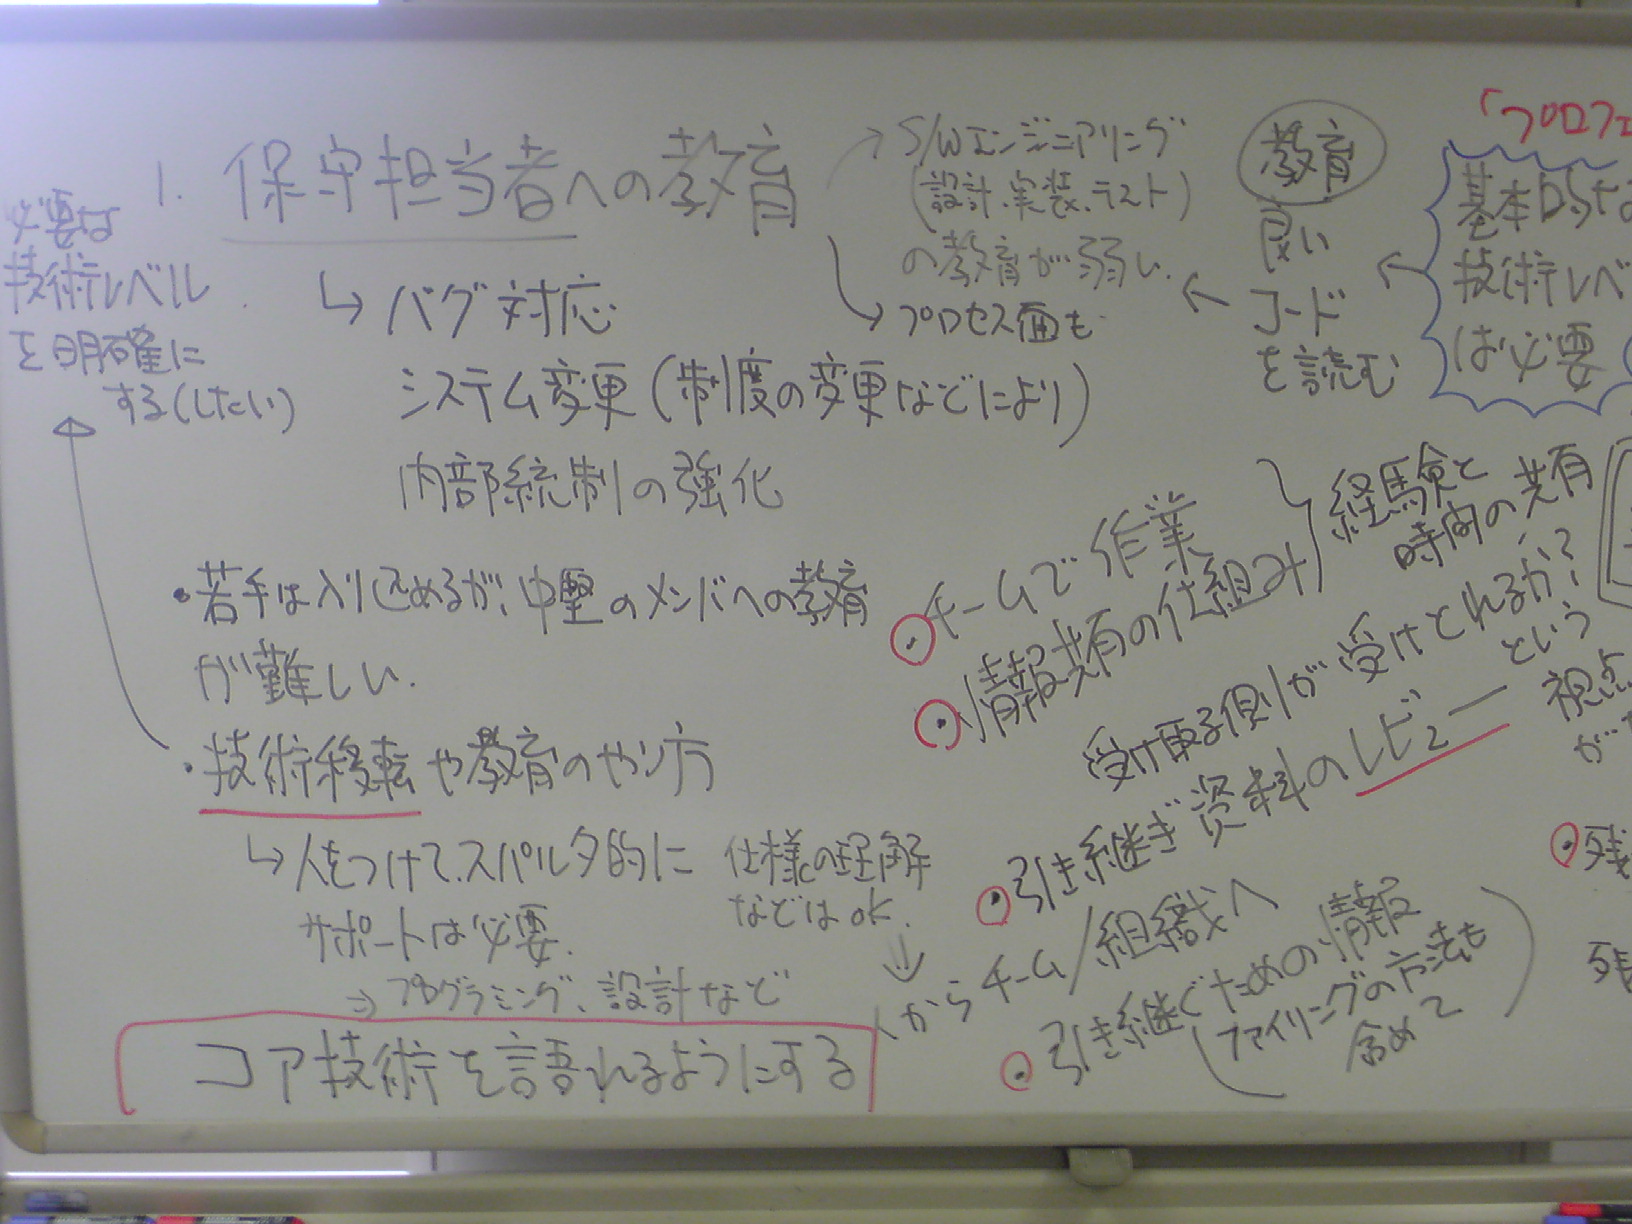 1. 保守担当者への教育
↳ バグ対応
システム変更(制度の変更などにより)
内部統制の強化
必要な
技術レベル
を明確に
する(したい)
・若手は入り込めるが、中堅のメンバへの教育
が難しい.
・技術移転や教育のやり方
↳ 人をつけて、スパルタ的に
サポートは必要.
⇒ プログラミング、設計など
仕様の理解
などはOK.
コア技術を語れるようにする
S/Wエンジニアリング
(設計、実装、テスト)
の教育が弱い.
プロセス面も
教育
良い
コード
を読む
「プロフェ
基本的な
技術レベ
は必要
・チームで作業
・情報共有の仕組み
経験と
時間の共有
受け取る側が受けとれるか?
という
視点
が
・引き継ぎ資料のレビュー
からチーム/組織へ
・引き継ぐための情報
(ファイリングの方法も
含めて
・残
残